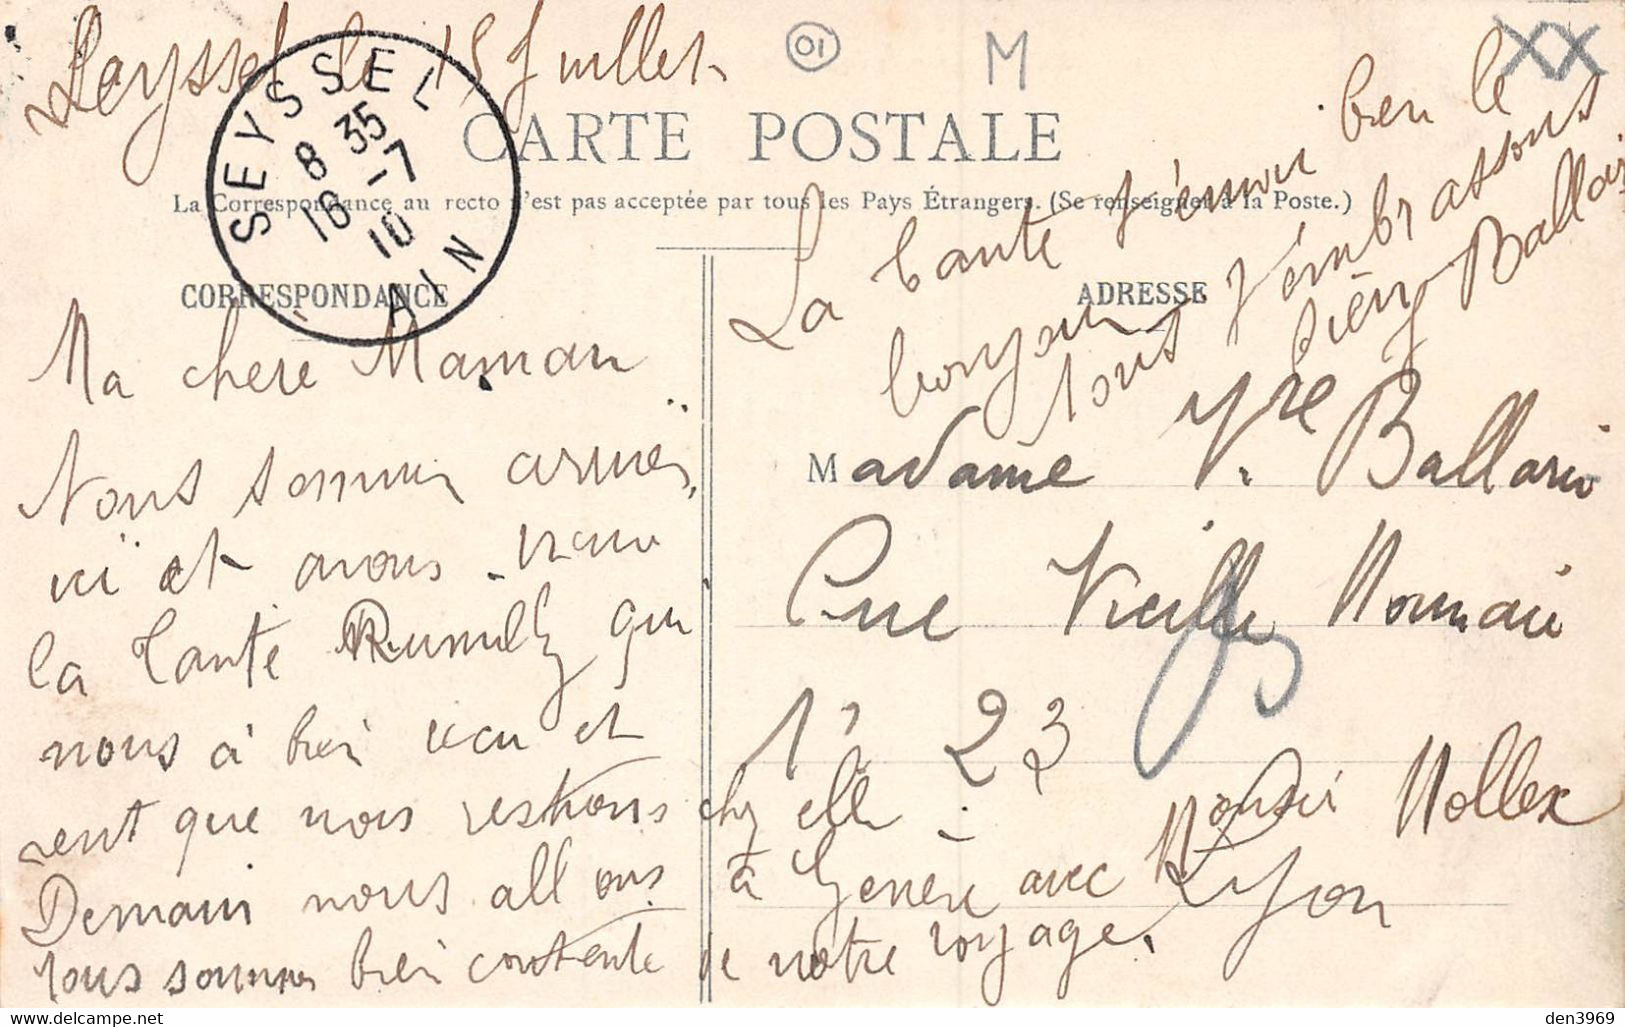 Seyssel le 15 Juillet
01
M
XX
SEYSSEL
8 35
16 -7
10
AIN
CARTE POSTALE
La Correspondance au recto n'est pas acceptée par tous les Pays Étrangers. (Se renseigner à la Poste.)
CORRESPONDANCE
ADRESSE
Ma chere Maman
Nous sommes
ici et avons
la tante Rumilly qui
nous à bien et
vent que nous restions chez elle -
Demain nous allons à Geneve avec Mollex
tous sommes bien contente de notre voyage.
La tante t'envoi bien le
bonjour
tous t'embrassons
bien
Madame Vve
Rue Vieille Monnaie
23
Lyon
den3969